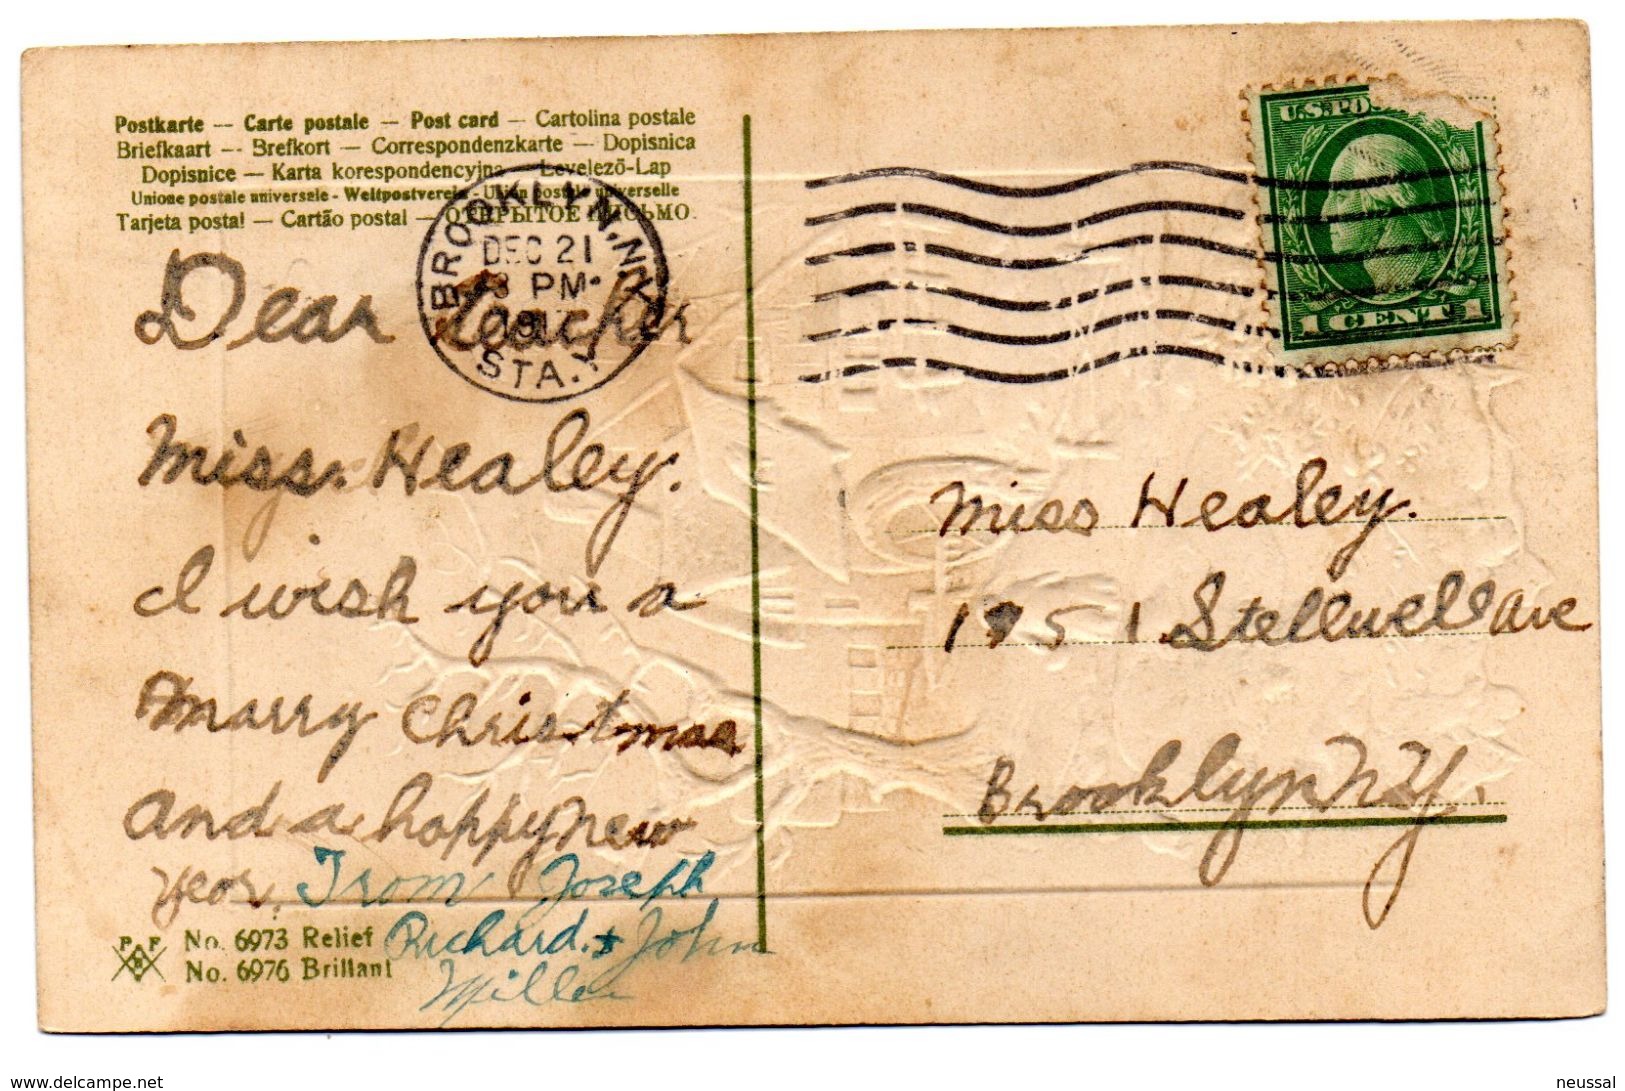 Postkarte — Carte postale — Post card — Cartolina postale
Briefkaart -- Brefkort — Correspondenzkarte — Dopisnica
Dopisnice — Karta korespondencyjna — Levelező-Lap
Unione postale universale - Weltpostverein - Unión postale universelle
Tarjeta postal — Cartão postal — ОТКРЫТОЕ ПИСЬМО.
BROOKLYN, N.Y.
DEC 21
PM
STA. Y
U.S. PO
1 CENT 1
Dear Teacher
Miss. Healey.
I wish you a
marry Christmas
and a happy new
year.
From Joseph
Richard. + John
Miller
Miss Healey.
1951 Stellwell Ave
Brooklyn N.Y.
P F B
No. 6973 Relief
No. 6976 Brillant
www.delcampe.net
neussal